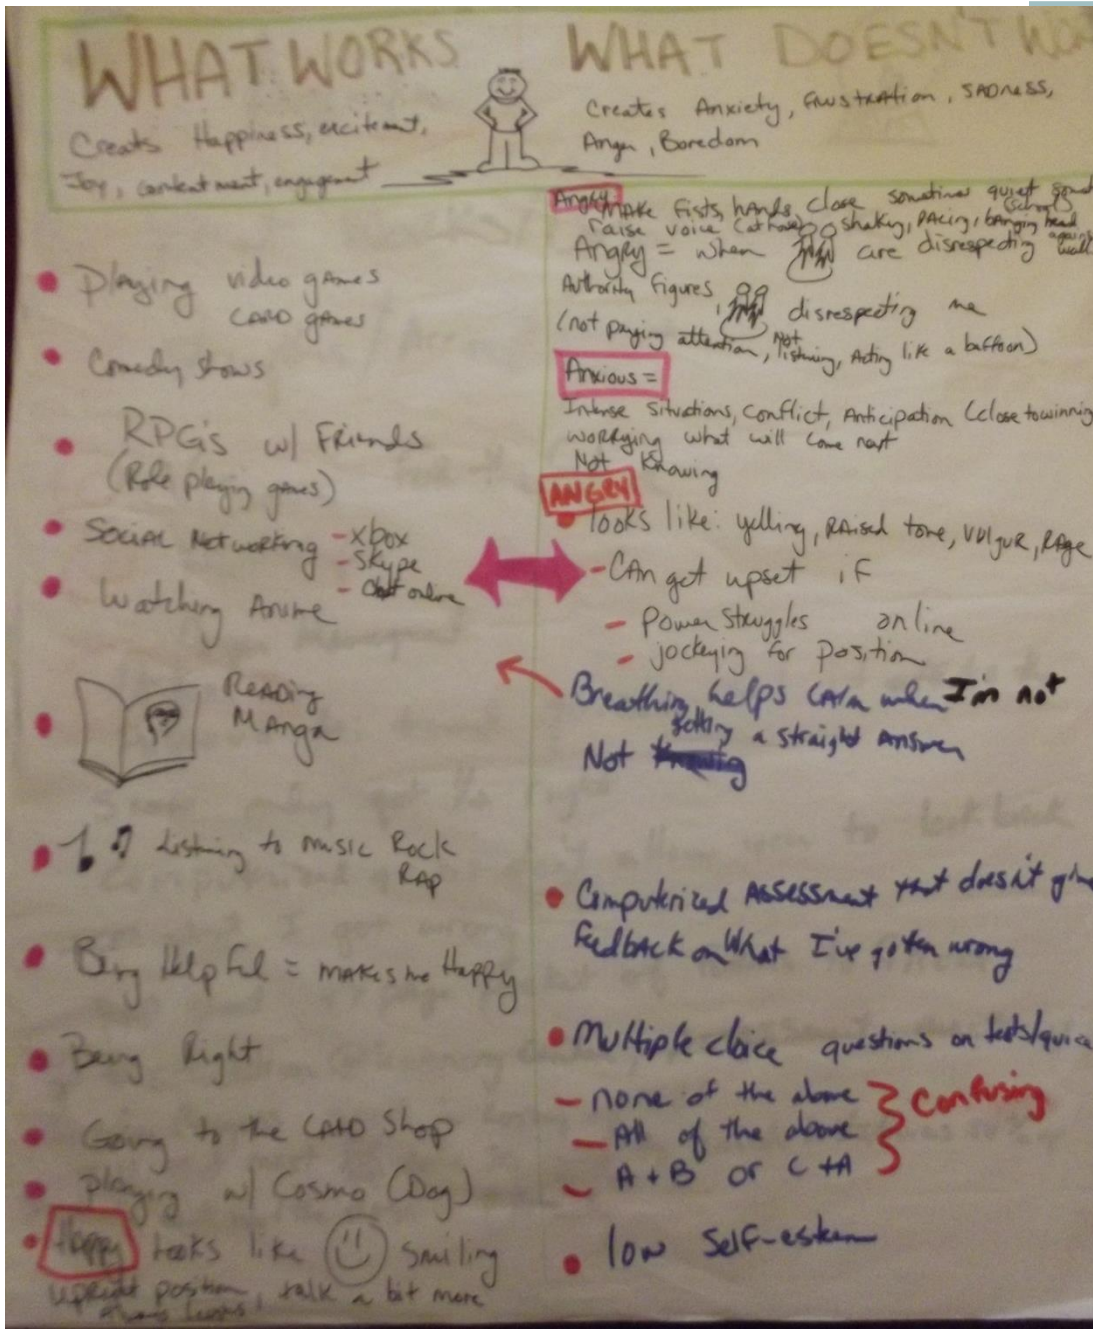 WHAT WORKS
Creates Happiness, excitement,
Joy, contentment, engagement
Playing video games
CARD games
Comedy shows
RPG's w/ Friends
(Role playing games)
Social Networking - xbox
- Skype
- Chat online
Watching Anime
Reading
Manga
Listening to music Rock
RAP
Being Helpful = makes me Happy
Being Right
Going to the CARD Shop
playing w/ Cosmo (Dog)
Happy looks like smiling
upright position, talk a bit more
WHAT DOESN'T
Creates Anxiety, frustration, SADness,
Anger, Boredom
Angry
MAKE fists, hands, close sometimes quiet
(school)
raise voice (at home) shaky, PAcing, banging head
against wall
Angry = when are disrespecting
Authority figures, disrespecting me
(not paying attention, Not listening, Acting like a baffoon)
Anxious =
Intense Situations, Conflict, Anticipation (close to winning
worrying what will come next
Not Knowing
ANGRY
looks like: yelling, RAised tone, VUlgUR, RAge
- CAn get upset if
- power struggles online
- jockeying for position
Breathing helps CAlm when I'm not
getting a straight Answer
Not
Computerized Assessment that doesn't give
feedback on What I've gotten wrong
Multiple choice questions on tests/
- none of the above
- All of the above
- A + B or C + A
Confusing
low Self-esteem